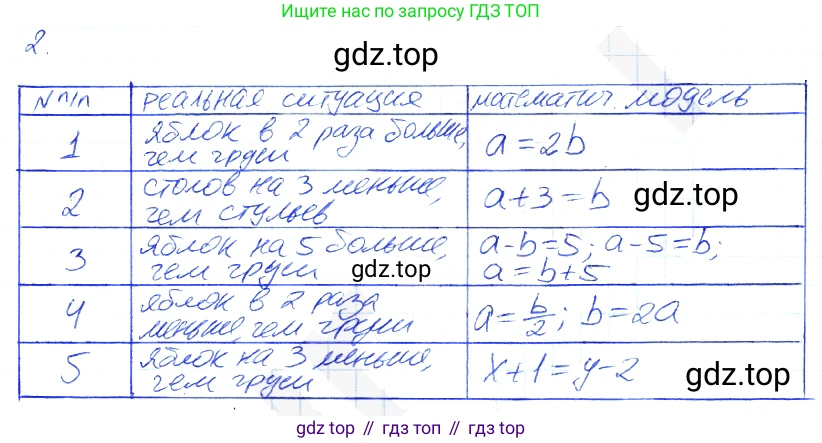 Ищите нас по запросу ГДЗ ТОП
2.
gdz.top
№ п/п реальная ситуация математич. модель
1 яблок в 2 раза больше, чем груш a = 2b
2 столов на 3 меньше, чем стульев a + 3 = b gdz.top
3 яблок на 5 больше, чем груш a - b = 5; a - 5 = b; a = b + 5
gdz.top
4 яблок в 2 раза меньше, чем груш a = b/2; b = 2a
5 яблок на 3 меньше, чем груш x + 1 = y - 2 gdz.top
gdz top // гдз топ // gdz.top